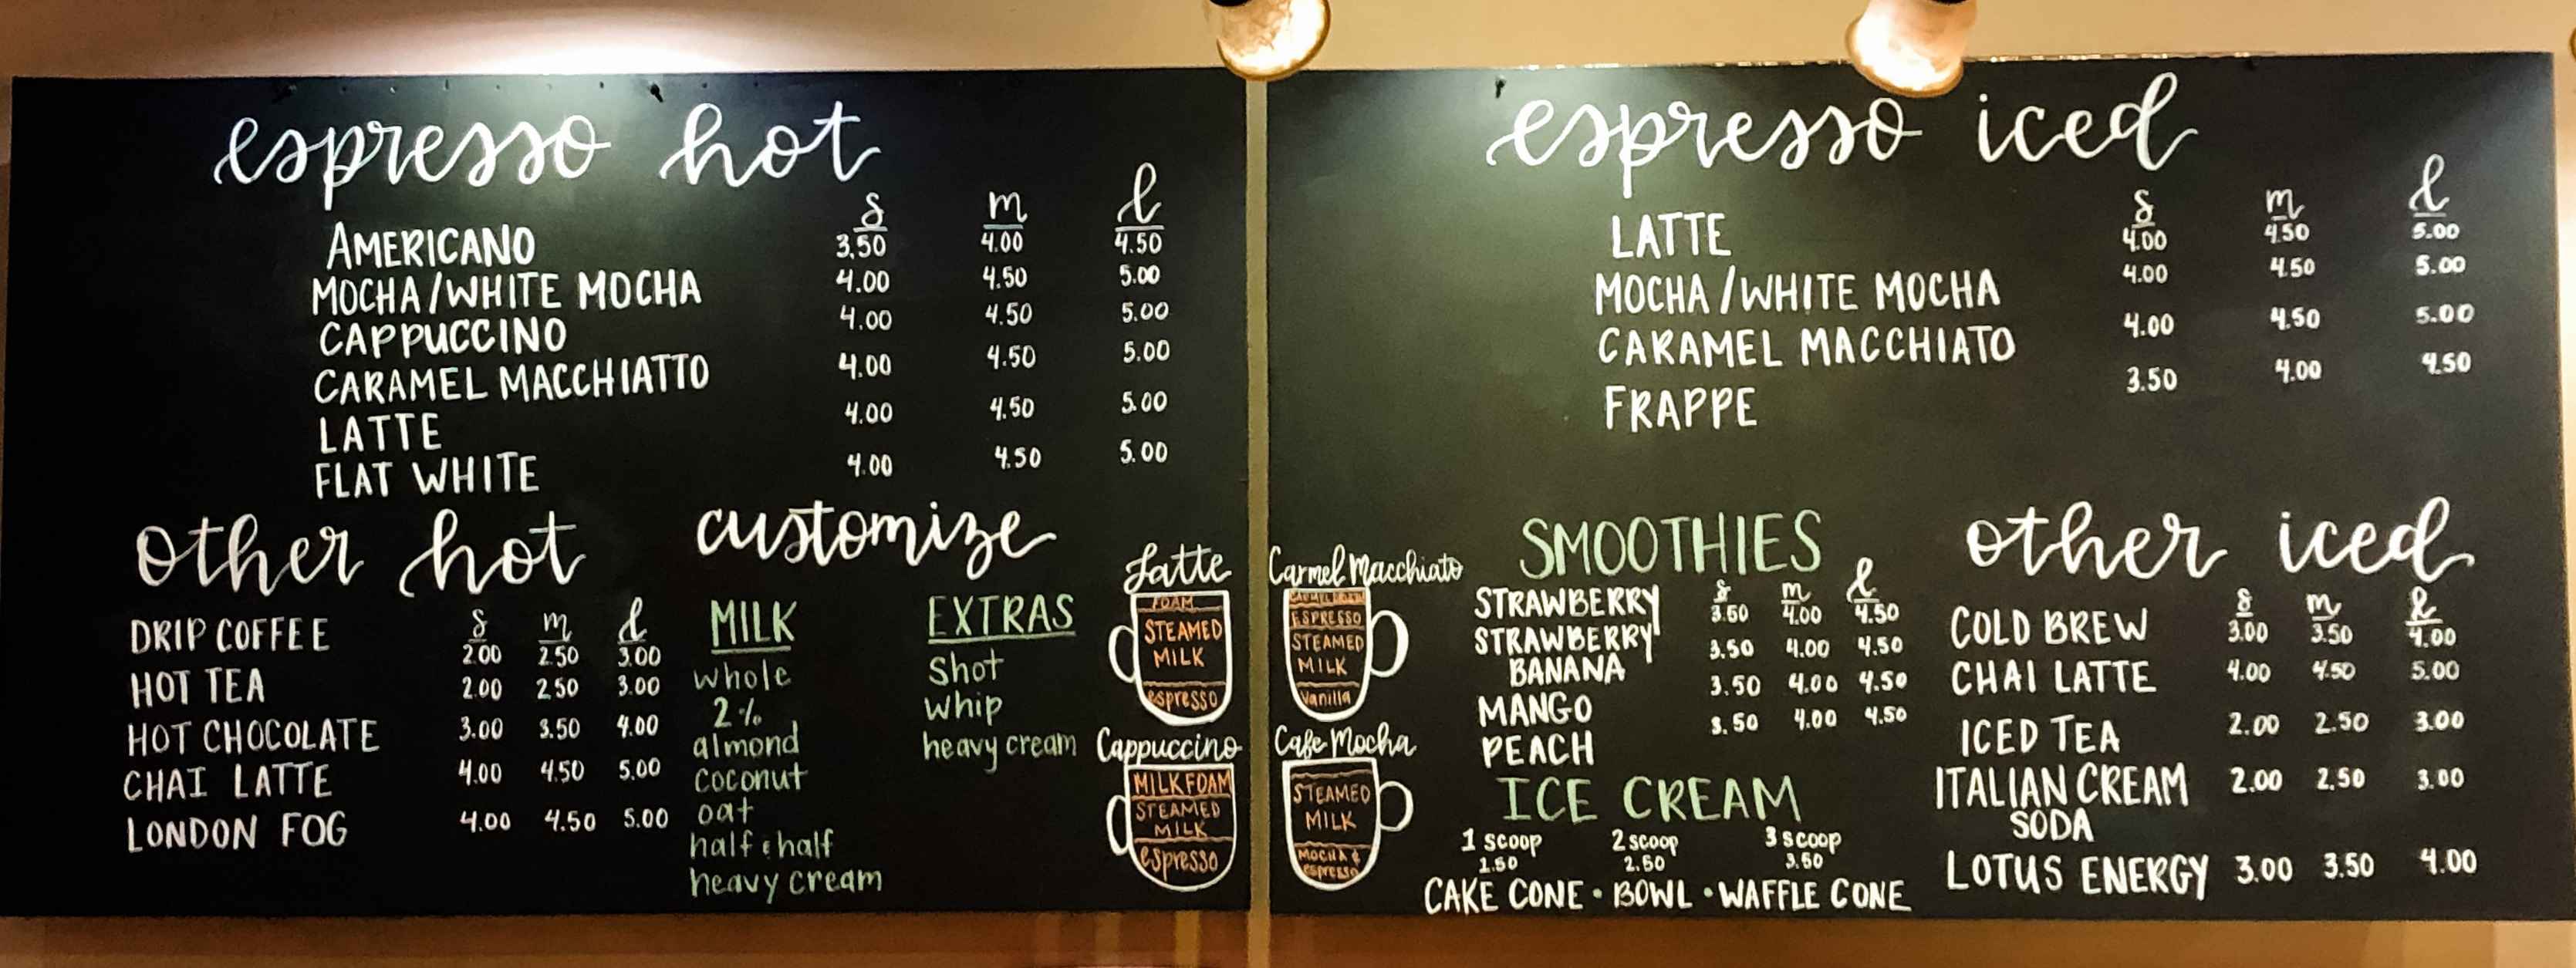 espresso hot
s m l
AMERICANO 3.50 4.00 4.50
MOCHA/WHITE MOCHA 4.00 4.50 5.00
CAPPUCCINO 4.00 4.50 5.00
CARAMEL MACCHIATTO 4.00 4.50 5.00
LATTE 4.00 4.50 5.00
FLAT WHITE 4.00 4.50 5.00
other hot
s m l
DRIP COFFEE 2.00 2.50 3.00
HOT TEA 2.00 2.50 3.00
HOT CHOCOLATE 3.00 3.50 4.00
CHAI LATTE 4.00 4.50 5.00
LONDON FOG 4.00 4.50 5.00
customize
MILK
whole
2%
almond
coconut
oat
half & half
heavy cream
EXTRAS
Shot
whip
heavy cream
Latte
FOAM
STEAMED
MILK
espresso
Cappuccino
MILK FOAM
STEAMED
MILK
espresso
espresso iced
s m l
LATTE 4.00 4.50 5.00
MOCHA/WHITE MOCHA 4.00 4.50 5.00
CARAMEL MACCHIATO 4.00 4.50 5.00
FRAPPE 3.50 4.00 4.50
Carmel Macchiato
ESPRESSO
STEAMED
MILK
Vanilla
Cafe Mocha
STEAMED
MILK
MOCHA &
espresso
SMOOTHIES
s m l
STRAWBERRY 3.50 4.00 4.50
STRAWBERRY 3.50 4.00 4.50
BANANA
MANGO 3.50 4.00 4.50
PEACH 3.50 4.00 4.50
ICE CREAM
1 scoop 2 scoop 3 scoop
1.50 2.50 3.50
CAKE CONE • BOWL • WAFFLE CONE
other iced
s m l
COLD BREW 3.00 3.50 4.00
CHAI LATTE 4.00 4.50 5.00
ICED TEA 2.00 2.50 3.00
ITALIAN CREAM 2.00 2.50 3.00
SODA
LOTUS ENERGY 3.00 3.50 4.00